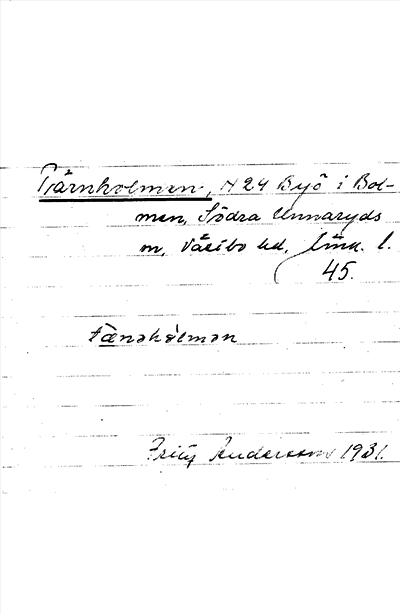 Tärnholmen, N 24 Byö i Bol-
men, Södra Unnaryds
sn, Västbo hd, Jönk. l.
45.
tænəhòlmən
Fritz Andersson 1931.